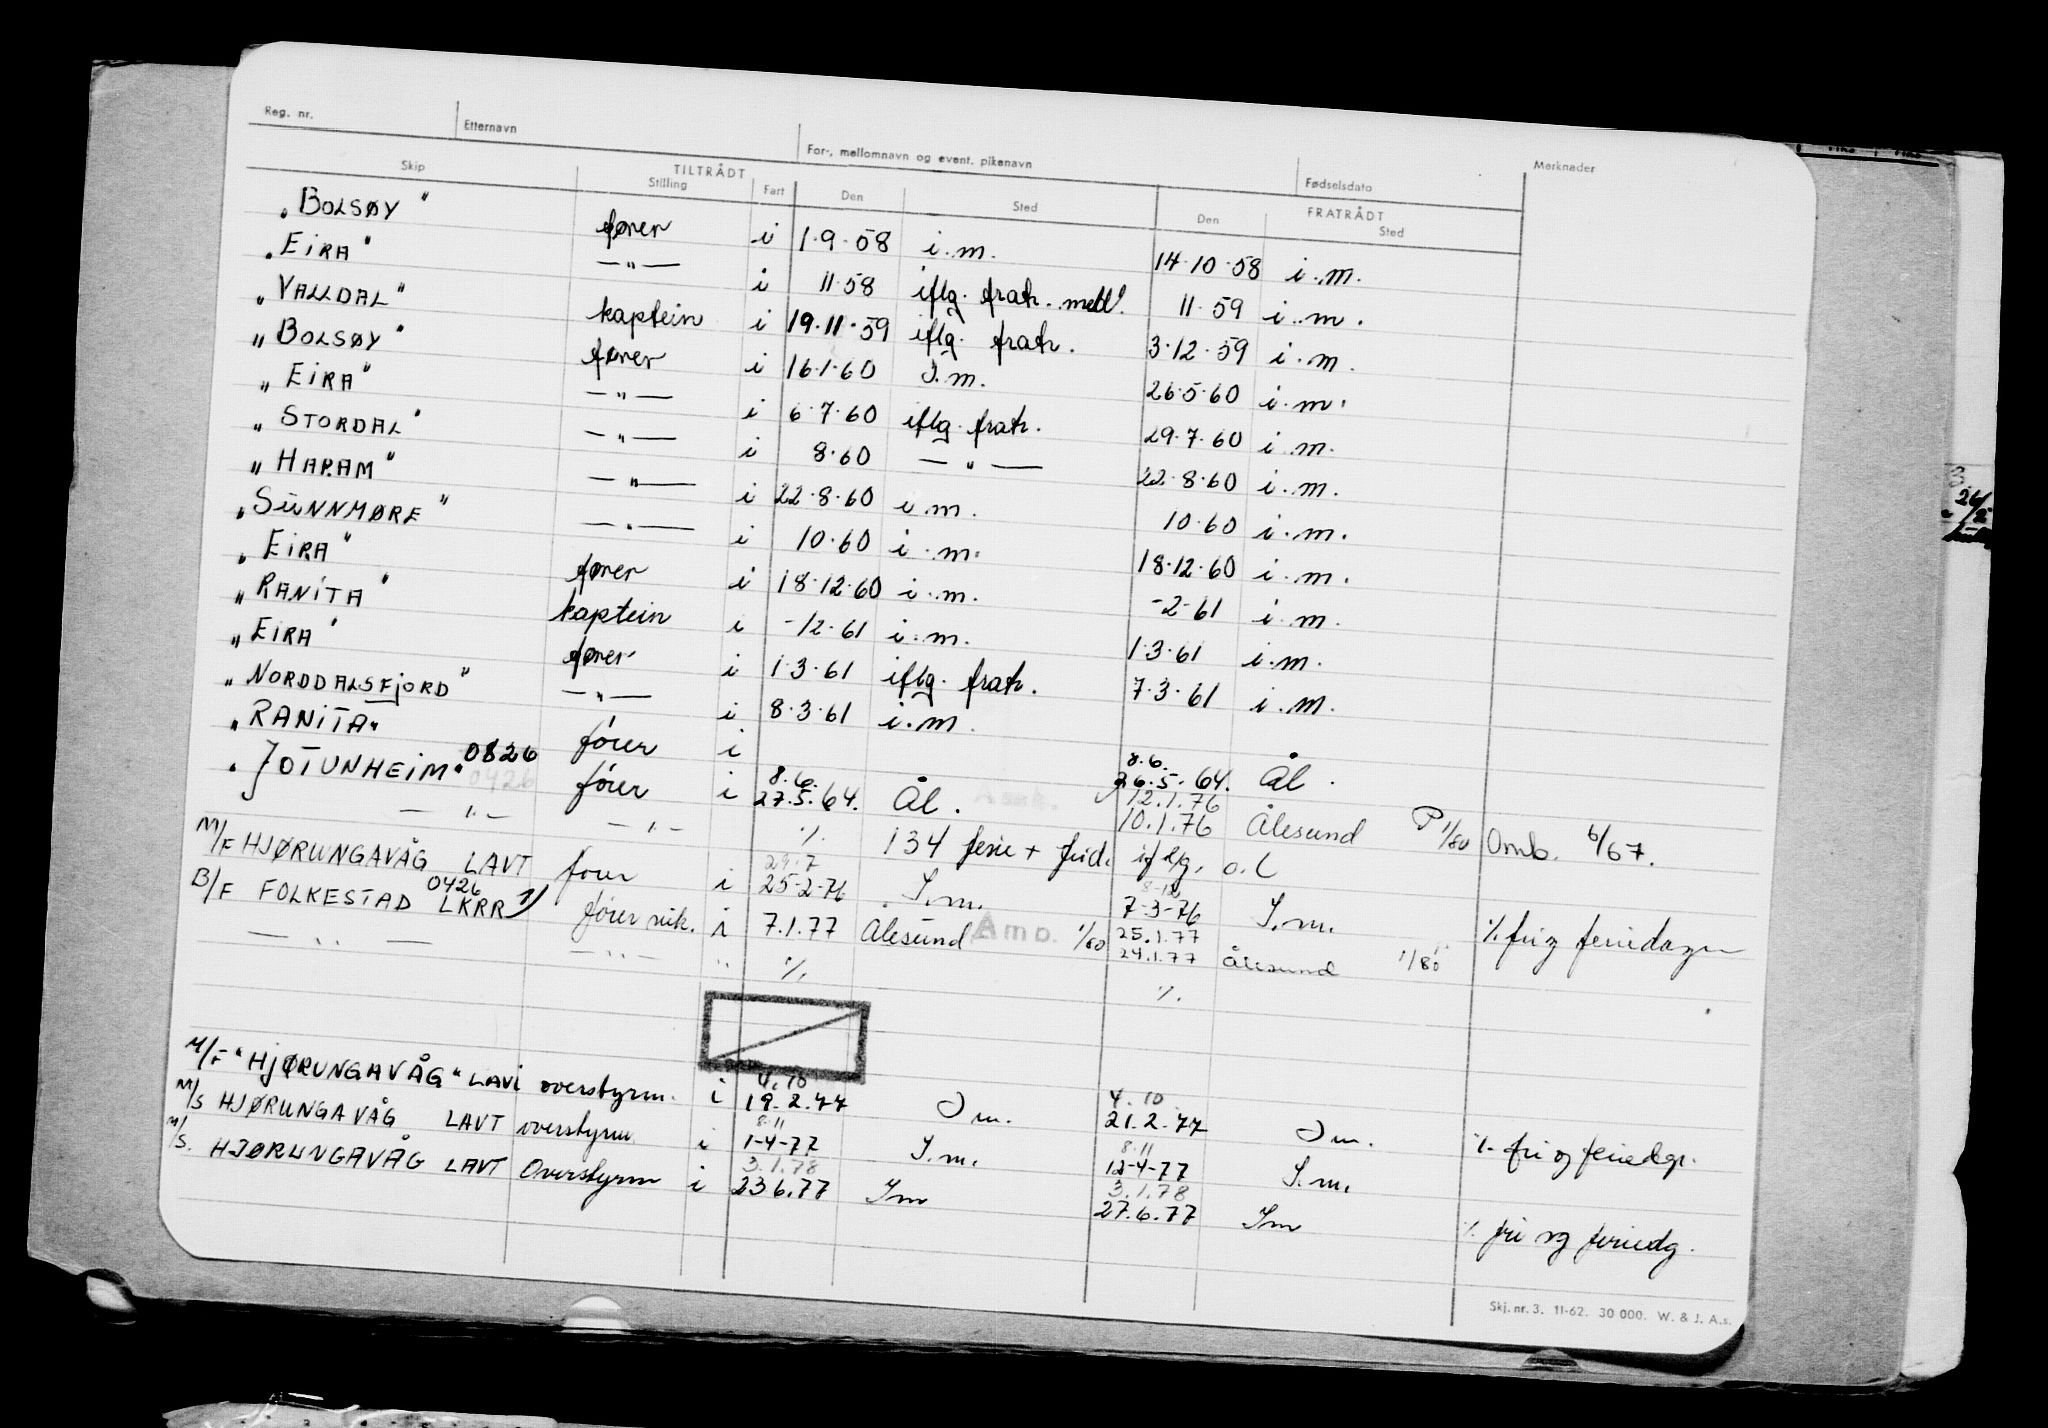 Reg. nr. Etternavn For-, mellomnavn og event. pikenavn Fødselsdato Merknader
Skip TILTRÅDT FRATRÅDT
Stilling Fart Den Sted Den Sted
"BOLSØY" fører i 1.9.58 i.m. 14.10.58 i.m.
"EIRA" —"— i 11.58 iflg. fratr. meld. 11.59 i.m.
"VALLDAL" kaptein i 19.11.59 iflg. fratr. 3.12.59 i.m.
"BOLSØY" fører i 16.1.60 I.m. 26.5.60 i.m.
"EIRA" —"— i 6.7.60 iflg. fratr. 29.7.60 i.m.
"STORDAL" —"— i 8.60 —"— 22.8.60 i.m.
"HARAM" —"— i 22.8.60 i.m. 10.60 i.m.
"SUNNMØRE" —"— i 10.60 i.m. 18.12.60 i.m.
"EIRA" fører i 18.12.60 i.m. -2-61 i.m.
"RANITA" kaptein i -12-61 i.m. 1.3.61 i.m.
"EIRA" fører i 1.3.61 iflg. fratr. 7.3.61 i.m.
"NORDDALSFJORD" —"— i 8.3.61 i.m.
"RANITA" fører i 8.6. 26.5.64. Ål.
"JOTUNHEIM" 0826 0426 fører i 8.6. 27.5.64. Ål. 12.1.76 10.1.76 Ålesund P 1/80 Omb. 6/67.
—"— —"— ./. 134 ferie + frid. iflg. o.l
M/F HJØRUNGAVÅG LAVT fører i 25-2-76 I.m. 7-3-76 I.m. ./. fri og feriedager
B/F FOLKESTAD 0426 LKRR 1) fører vik. i 7.1.77 Ålesund Åmo. 1/80 25.1.77 24.1.77 Ålesund 1/80
—"— —"— " ./. ./.
M/F "HJØRUNGAVÅG" LAVT overstyrm. i 4.10 19.2.77 I m. 4.10 21.2.77 I m. ./. fri og feriedgr.
M/S HJØRUNGAVÅG LAVT overstyrm i 8.11 1-4-77 I.m. 8.11 12-4-77 I.m.
M/S. HJØRUNGAVÅG LAVT Overstyrm i 3.1.78 23 6.77 Im 3.1.78 27.6.77 Im ./. fri og feriedg.
Skj. nr. 3. 11-62. 30 000. W. & J. A.s.